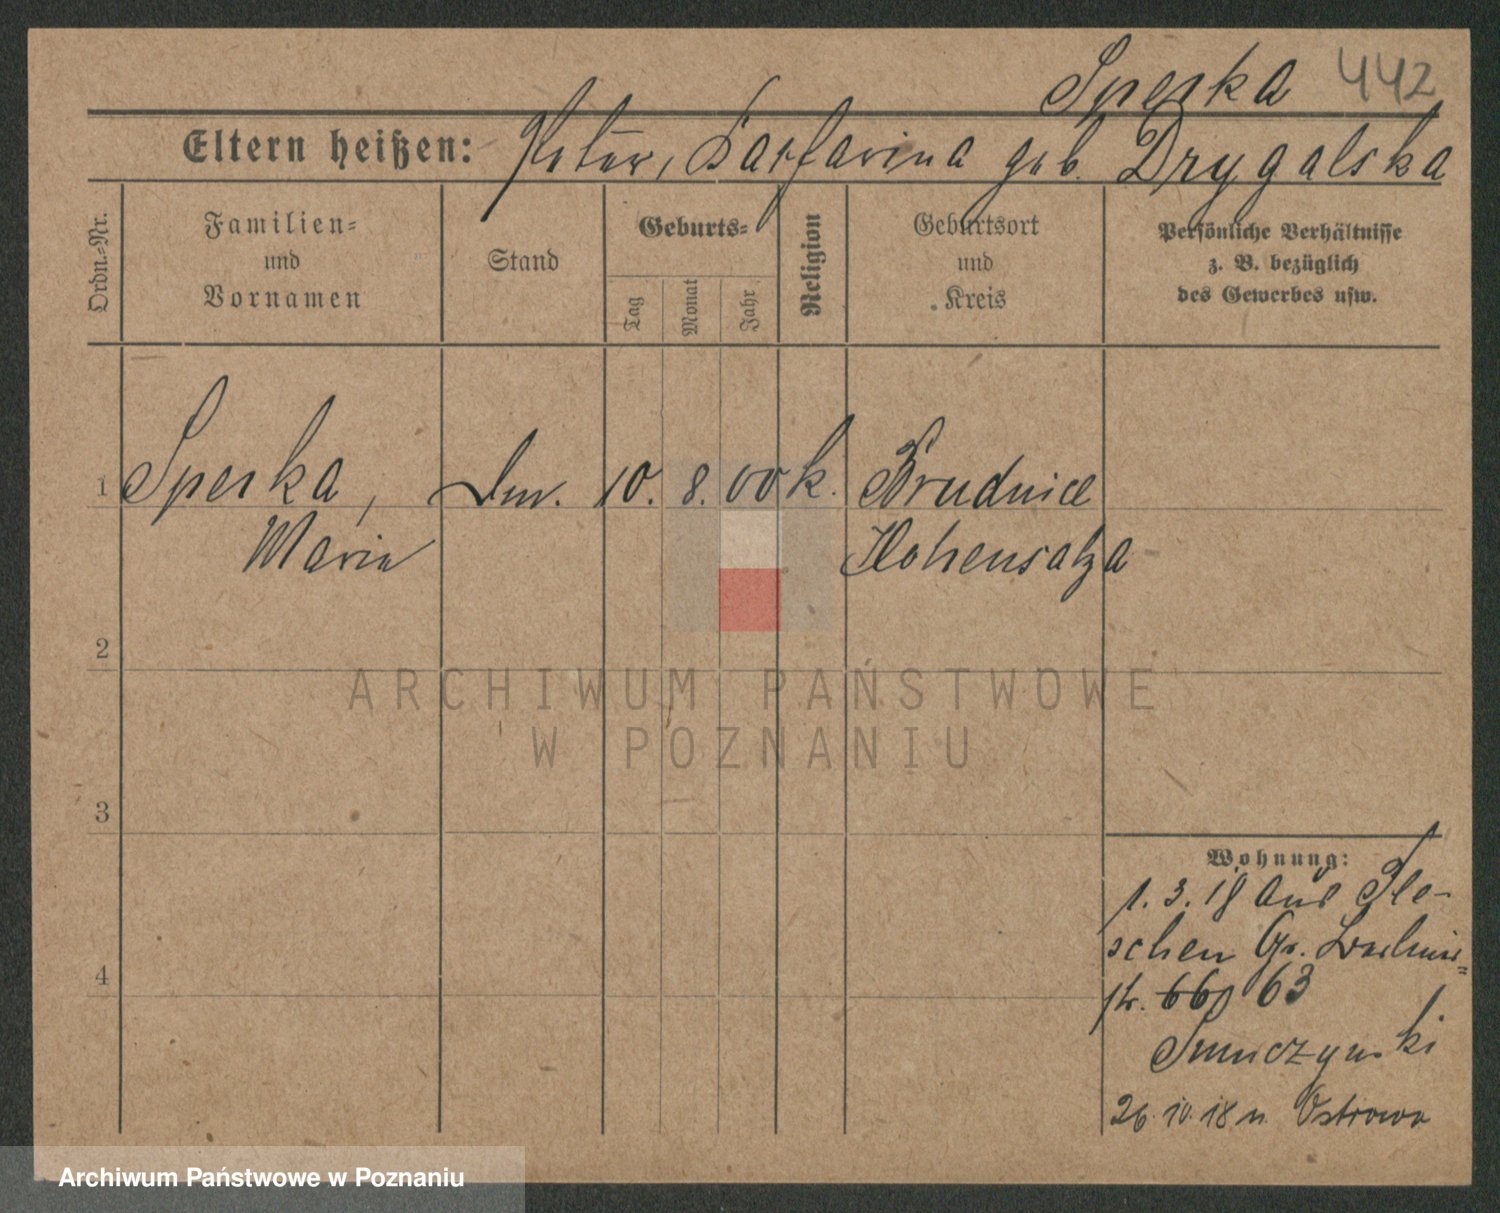 Sperka 442
Eltern heißen: Peter, Katharina geb. Drygalska
Ordn.-Nr.
Familien-
und
Vornamen
Stand
Geburts-
Tag
Monat
Jahr
Religion
Geburtsort
und
Kreis
Persönliche Verhältnisse
z. B. bezüglich
des Gewerbes usw.
1 Sperka, 10. 8. 00 k. Brudnice
Marie Hohensalza
2
3
4
Wohnung:
1. 3. 18 aus Ple-
schen Gr.
str. 63
26. 10. 18 n. Ostrowo
ARCHIWUM PAŃSTWOWE
W POZNANIU
Archiwum Państwowe w Poznaniu